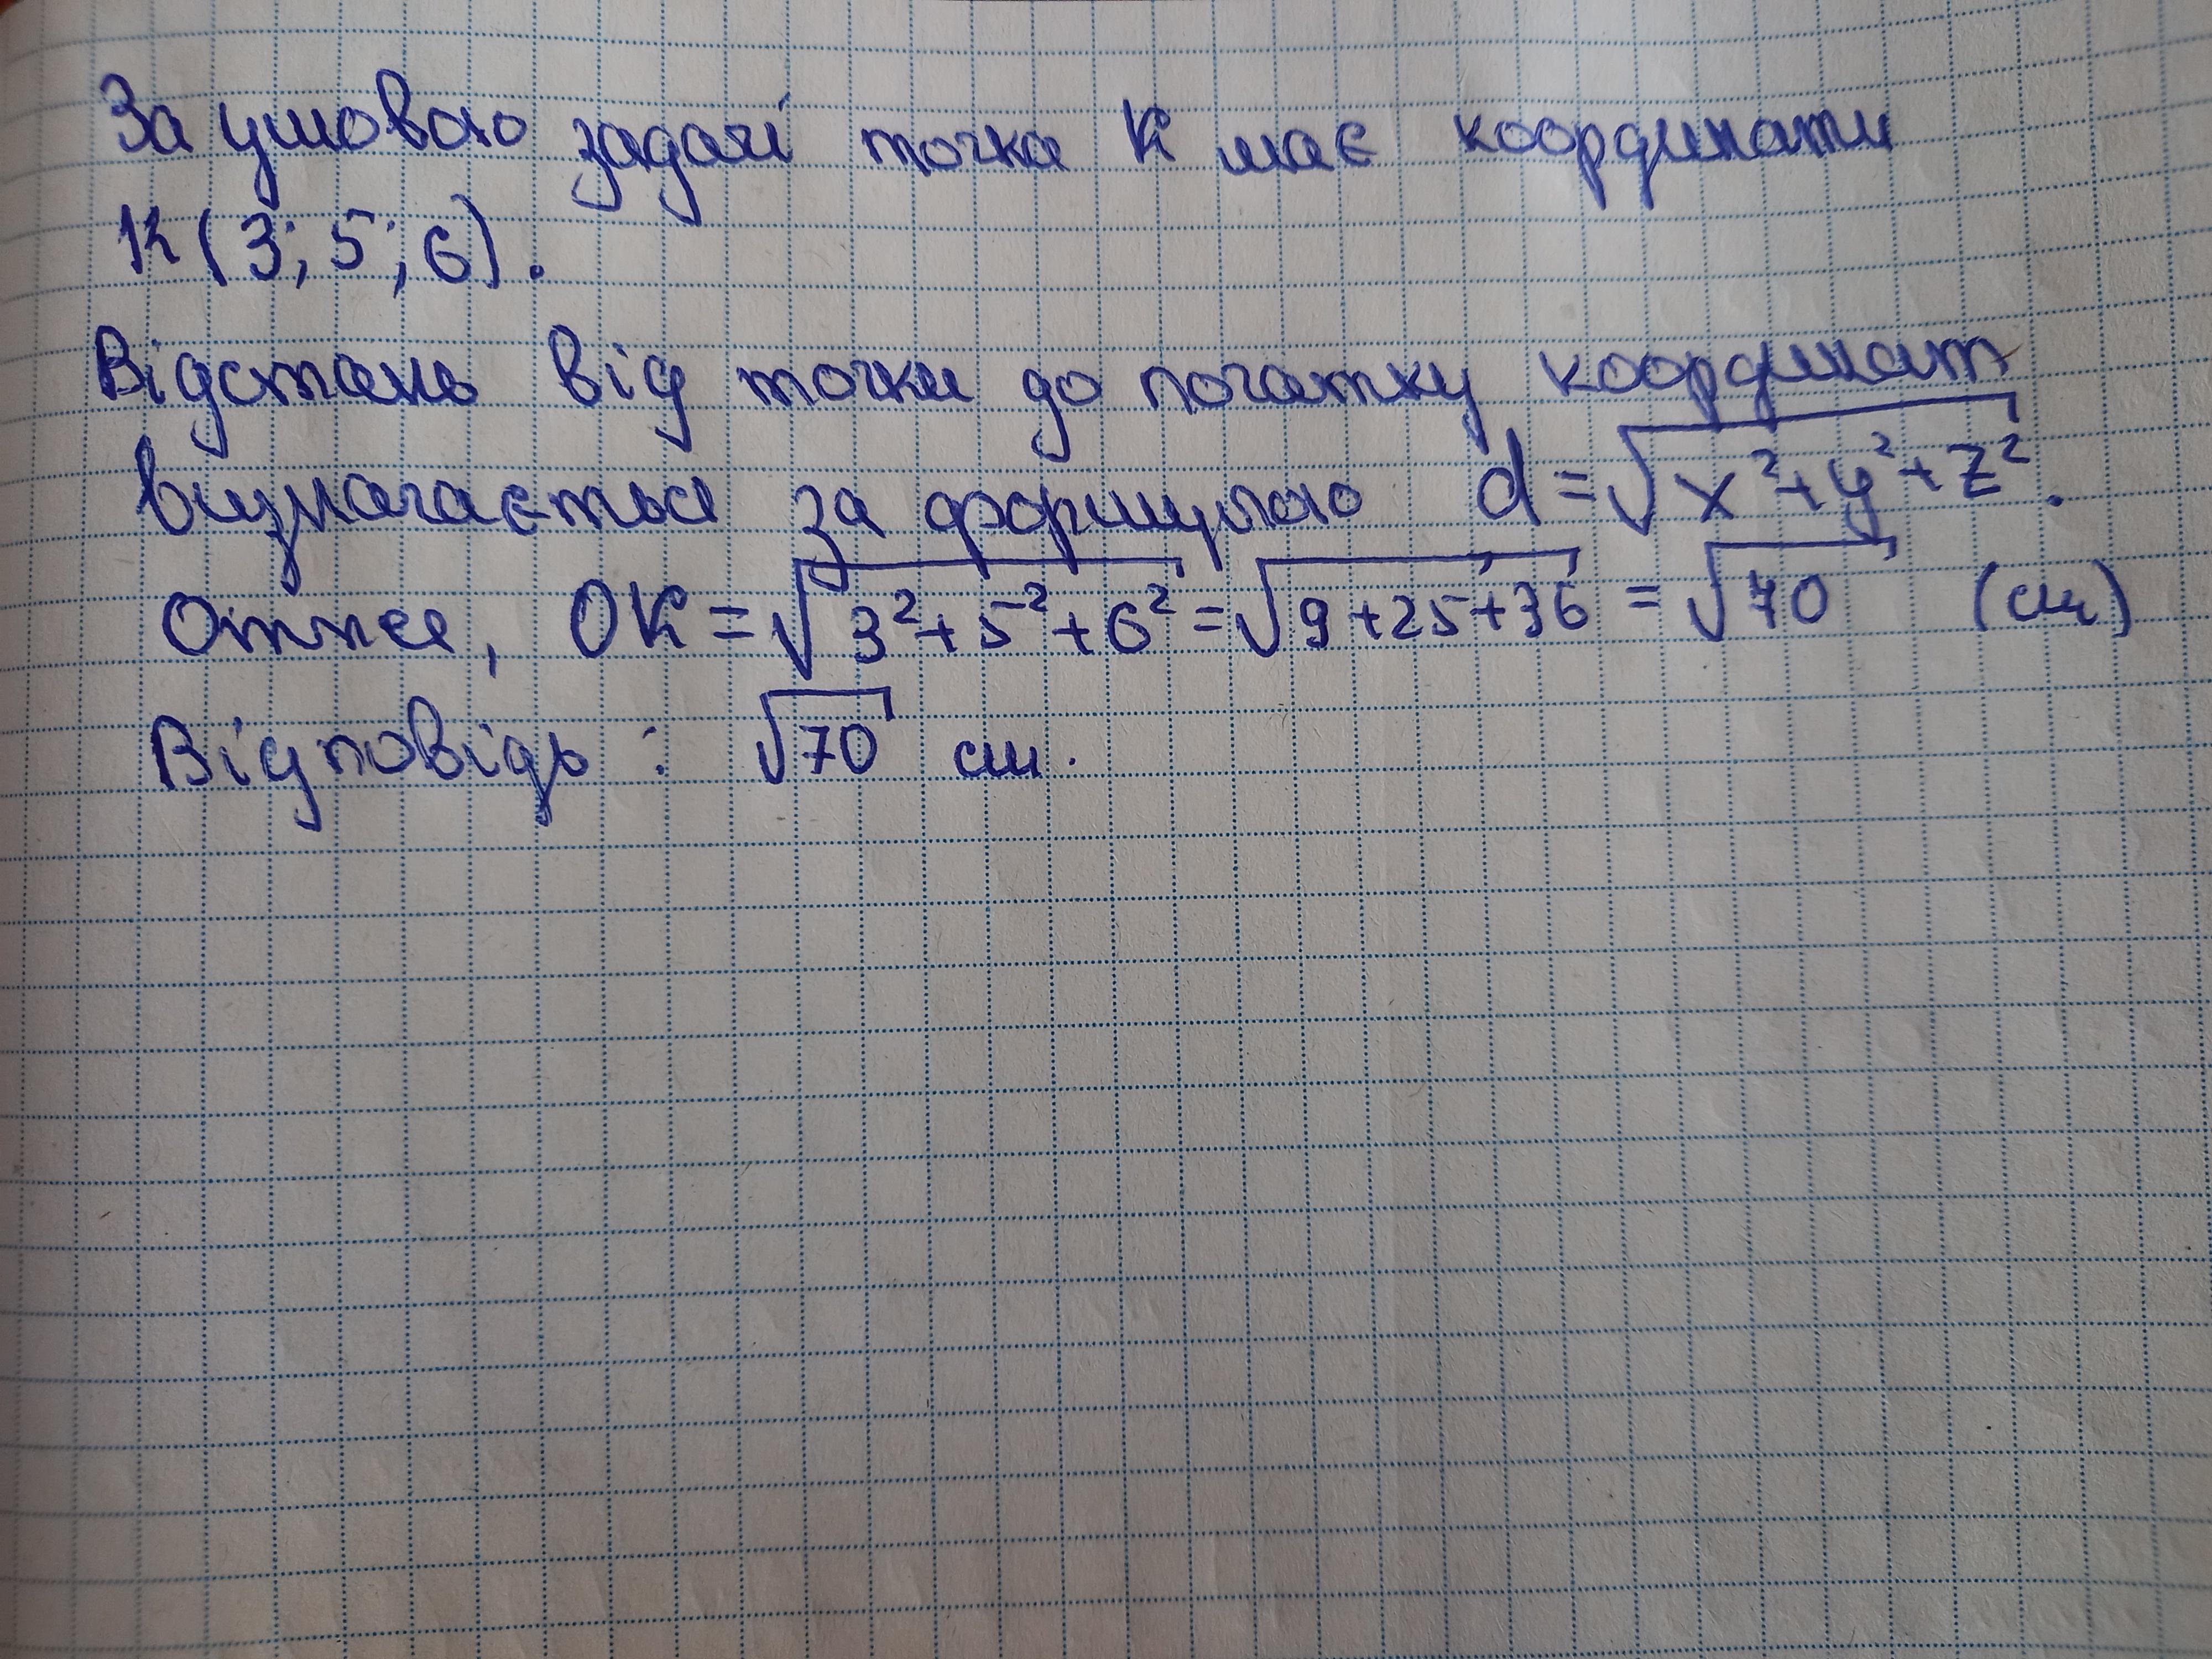 За умовою задачі точка K має координати
K(3; 5; 6).
Відстань від точки до початку координат
визначається за формулою d = √x²+y²+z².
Отже, OK = √3²+5²+6² = √9+25+36 = √70 (см)
Відповідь: √70 см.